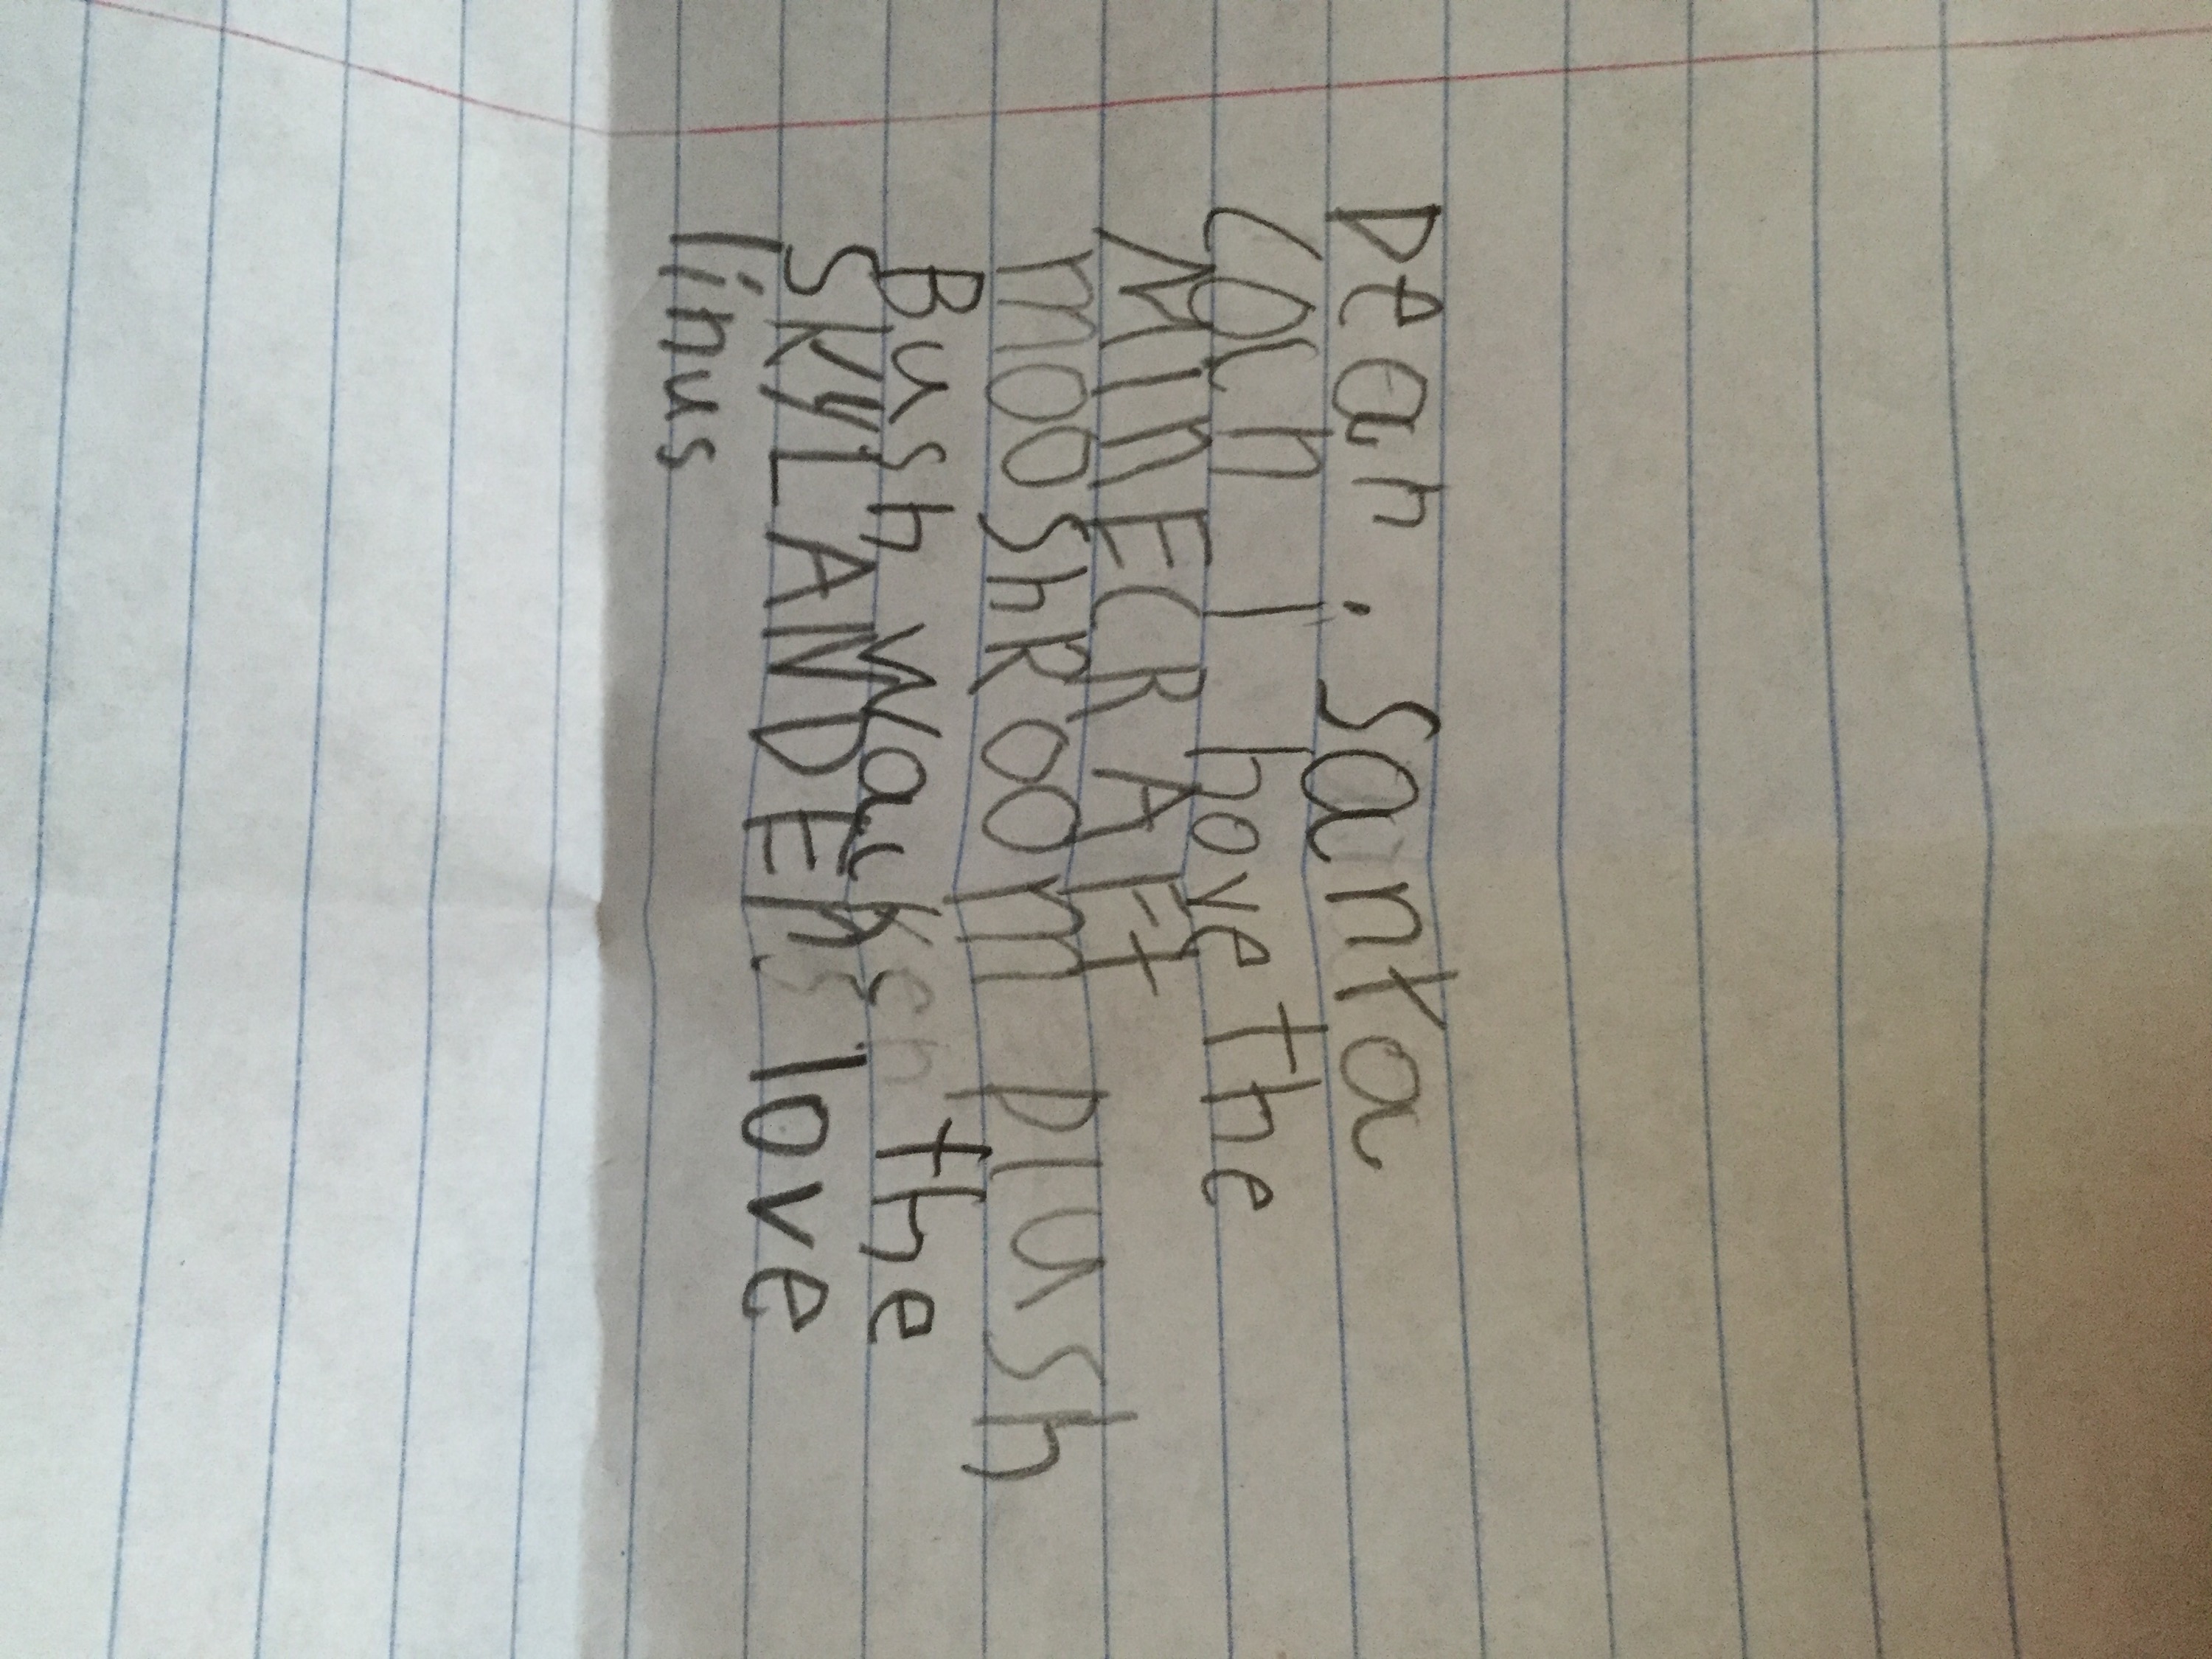 Dear. Santa
Coun I hove the
MINECRAFt
mooShRoom plush
Bush Wauksh the
SKYLANDErs love
linus